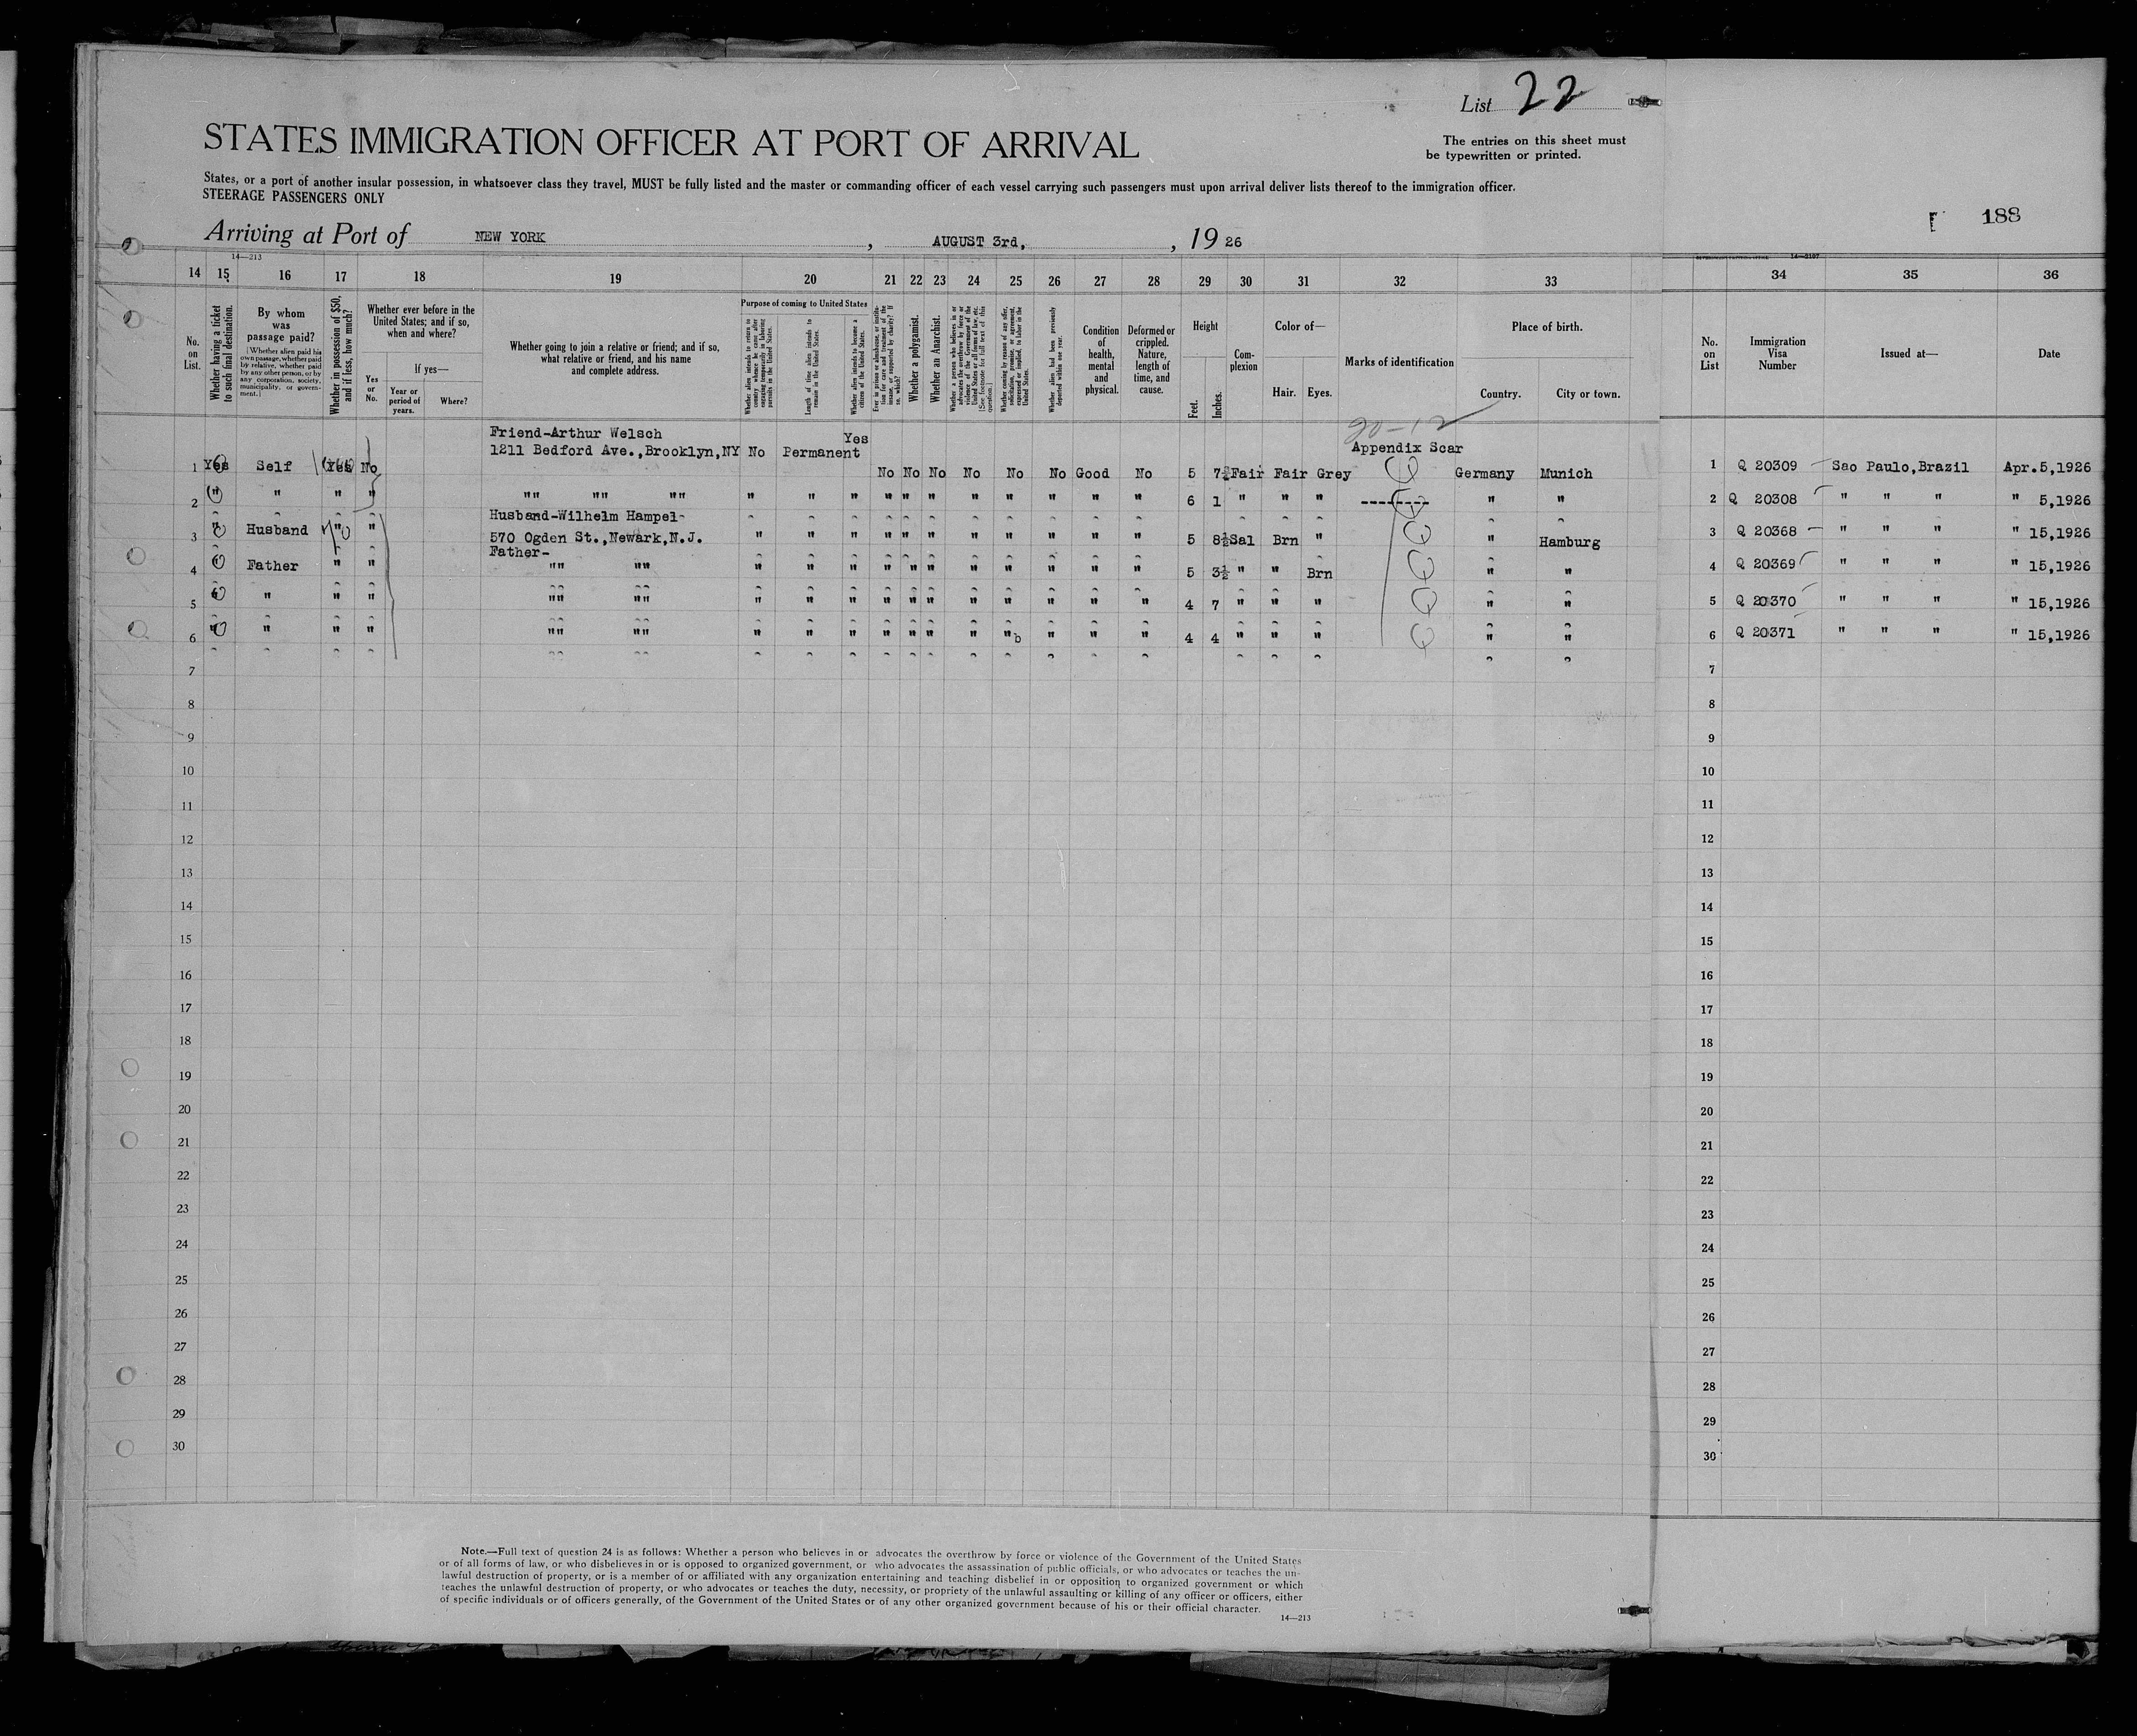 List 22
STATES IMMIGRATION OFFICER AT PORT OF ARRIVAL
The entries on this sheet must
be typewritten or printed.
States, or a port of another insular possession, in whatsoever class they travel, MUST be fully listed and the master or commanding officer of each vessel carrying such passengers must upon arrival deliver lists thereof to the immigration officer.
STEERAGE PASSENGERS ONLY
188
Arriving at Port of NEW YORK, AUGUST 3rd, , 19 26
14—213
14 15 16 17 18 19 20 21 22 23 24 25 26 27 28 29 30 31 32 33 34 35 36
No. on List.
Whether having a ticket to such final destination.
By whom was passage paid?
[Whether alien paid his own passage, whether paid by relative, whether paid by any other person, or by any corporation, society, municipality, or government.]
Whether in possession of $50, and if less, how much?
Whether ever before in the United States; and if so, when and where?
Yes or No.
If yes—
Year or period of years.
Where?
Whether going to join a relative or friend; and if so, what relative or friend, and his name and complete address.
Purpose of coming to United States
Whether alien intends to return to country whence he came after engaging temporarily in laboring pursuits in the United States.
Length of time alien intends to remain in the United States.
Whether alien intends to become a citizen of the United States.
Ever in prison or almshouse, or institution for care and treatment of the insane, or supported by charity? If so, which?
Whether a polygamist.
Whether an Anarchist.
Whether a person who believes in or advocates the overthrow by force or violence of the Government of the United States or all forms of law, etc. [See footnote for full text of this question.]
Whether coming by reason of any offer, solicitation, promise, or agreement, expressed or implied, to labor in the United States.
Whether alien had been previously deported within one year.
Condition of health, mental and physical.
Deformed or crippled. Nature, length of time, and cause.
Height
Feet. Inches.
Complexion
Color of—
Hair. Eyes.
Marks of identification
Place of birth.
Country. City or town.
No. on List
Immigration Visa Number
Issued at—
Date
20-12
Friend-Arthur Welsch
1211 Bedford Ave.,Brooklyn,NY No Permanent Yes Appendix Scar
1 Yes Self Yes No No No No No No No Good No 5 7½ Fair Fair Grey Germany Munich 1 Q 20309 Sao Paulo,Brazil Apr.5,1926
2 " " " " "" "" "" " " " " " " " " " " " 6 1 " " " ------- " " 2 Q 20308 " " " " 5,1926
Husband-Wilhelm Hampel
3 " Husband " " 570 Ogden St.,Newark,N.J. " " " " " " " " " " " 5 8½ Sal Brn " " Hamburg 3 Q 20368 " " " " 15,1926
Father-
4 " Father " " "" "" " " " " " " " " " " " 5 3½ " " Brn " " 4 Q 20369 " " " " 15,1926
5 " " " " "" "" " " " " " " " " " " " 4 7 " " " " " 5 Q 20370 " " " " 15,1926
6 " " " " "" "" " " " " " " " "b " " " 4 4 " " " " " 6 Q 20371 " " " " 15,1926
7 7
8 8
9 9
10 10
11 11
12 12
13 13
14 14
15 15
16 16
17 17
18 18
19 19
20 20
21 21
22 22
23 23
24 24
25 25
26 26
27 27
28 28
29 29
30 30
Note.—Full text of question 24 is as follows: Whether a person who believes in or advocates the overthrow by force or violence of the Government of the United States
or of all forms of law, or who disbelieves in or is opposed to organized government, or who advocates the assassination of public officials, or who advocates or teaches the un-
lawful destruction of property, or is a member of or affiliated with any organization entertaining and teaching disbelief in or opposition to organized government or which
teaches the unlawful destruction of property, or who advocates or teaches the duty, necessity, or propriety of the unlawful assaulting or killing of any officer or officers, either
of specific individuals or of officers generally, of the Government of the United States or of any other organized government because of his or their official character.
14—213